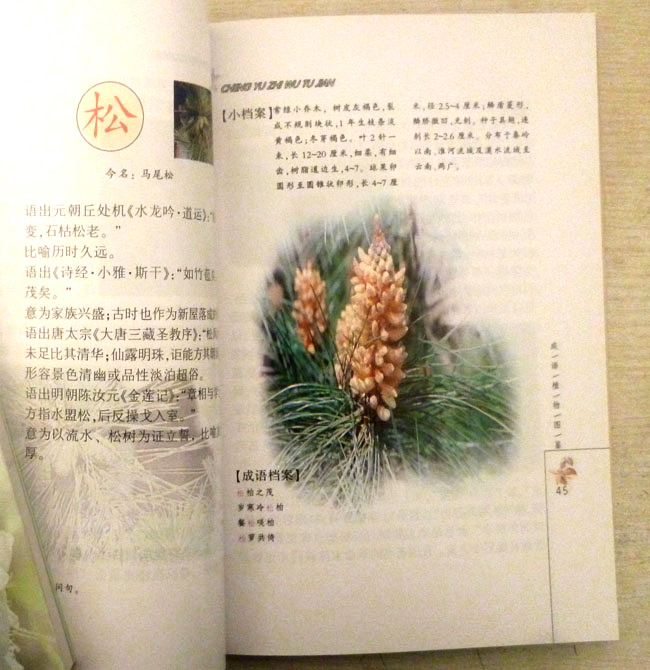 松
今名：马尾松
语出元朝丘处机《水龙吟·道运》：“
变，石枯松老。”
比喻历时久远。
语出《诗经·小雅·斯干》：“如竹苞
茂矣。”
意为家族兴盛；古时也作为新屋落成的
语出唐太宗《大唐三藏圣教序》：“松风
未足比其清华；仙露明珠，讵能方其朗
形容景色清幽或品性淡泊超俗。
语出明朝陈汝元《金莲记》：“章相与
方指水盟松，后反操戈入室。”
意为以流水、松树为证立誓，比喻
厚。
问句。
CHENG YU ZHI WU TU JIAN
【小档案】常绿小乔木，树皮灰褐色，裂
成不规则块状；1年生枝条淡
黄褐色；冬芽褐色。叶2针一
束，长12~20厘米，细柔，有细
齿，树脂道边生，4~7。球果卵
圆形至圆锥状卵形，长4~7厘
米，径2.5~4厘米；鳞盾菱形，
鳞脐微凹，无刺。种子具翅，连
翅长2~2.6厘米。分布于秦岭
以南、淮河流域及汉水流域至
云南、两广。
成语植物图鉴
45
【成语档案】
松柏之茂
岁寒冷松柏
餐松啖柏
松萝共倚